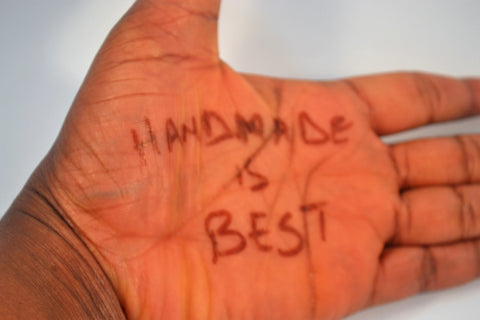 HANDMADE
IS
BEST